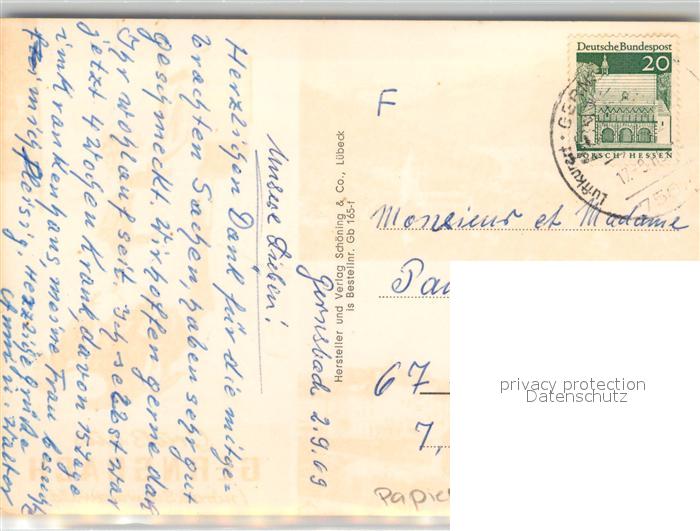 Gernsbad 2.9.69
Unsere Lieben!
Herzlichen Dank für die mitge-
brachten Sachen haben sehr gut
geschmeckt. Wir hoffen gerne daß
Ihr wohlauf seit. Ich selbst war
jetzt 4 Wochen krank, davon 15 Tage
im Krankenhaus, meine Frau besucht
mich fleissig. Herzige Grüße
Anni u. Walter
Hersteller und Verlag Schöning & Co., Lübeck
is Bestellnr. Gb 165-f
F
Deutsche Bundespost
20
LORSCH/HESSEN
Luftkurort · GERNS
Monsieur et Madame
Pau
67
7,
privacy protection
Datenschutz
Papie